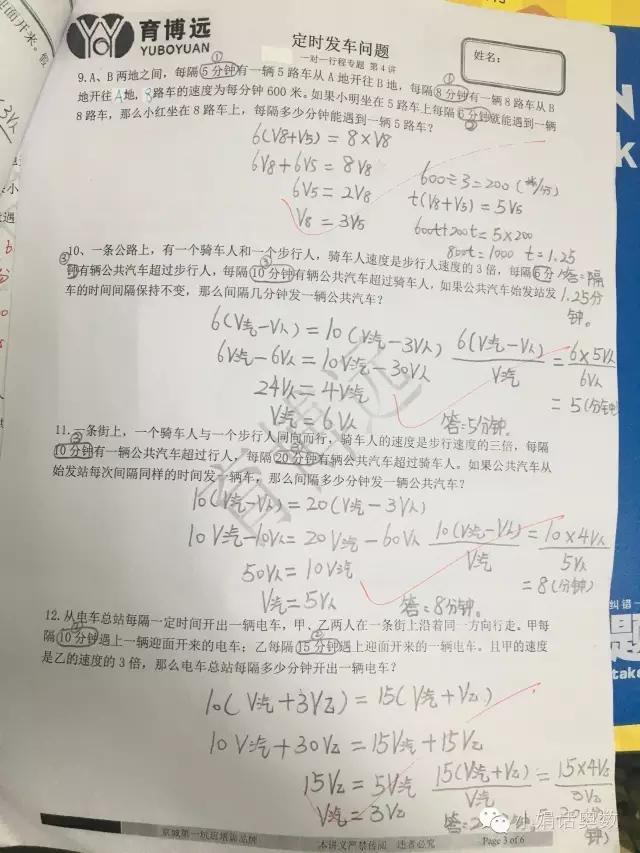 迎面开来。假
育博远
YUBOYUAN
定时发车问题
一对一行程专题 第4讲
姓名:
9.A、B两地之间,每隔5分钟有一辆5路车从A地开往B地,每隔8分钟有一辆8路车从B
地开往A地,8路车的速度为每分钟600米.如果小明坐在5路车上每隔6分钟就能遇到一辆
8路车,那么小红坐在8路车上,每隔多少分钟能遇到一辆5路车?
6(V8+V5)=8×V8
6V8+6V5=8V8
6V5=2V8
V8=3V5
600÷3=200(米/分)
t(V8+V5)=5V5
600t+200t=5×200
800t=1000 t=1.25
答:隔
1.25分
钟。
10、一条公路上,有一个骑车人和一个步行人,骑车人速度是步行人速度的3倍,每隔6分
钟有辆公共汽车超过步行人,每隔10分钟有辆公共汽车超过骑车人,如果公共汽车始发站发
车的时间间隔保持不变,那么间隔几分钟发一辆公共汽车?
6(V汽-V人)=10(V汽-3V人)
6V汽-6V人=10V汽-30V人
24V人=4V汽
V汽=6V人
6(V汽-V人)/V汽=6×5V人/6V人
=5(分钟)
答:5分钟。
11.一条街上,一个骑车人与一个步行人同向而行,骑车人的速度是步行速度的三倍,每隔
10分钟有一辆公共汽车超过行人,每隔20分钟有辆公共汽车超过骑车人。如果公共汽车从
始发站每次间隔同样的时间发一辆车,那么间隔多少分钟发一辆公共汽车?
10(V汽-V人)=20(V汽-3V人)
10V汽-10V人=20V汽-60V人
50V人=10V汽
V汽=5V人
10(V汽-V人)/V汽=10×4V人/5V人
=8(分钟)
答:8分钟。
12.从电车总站每隔一定时间开出一辆电车,甲、乙两人在一条街上沿着同一方向行走。甲每
隔10分钟遇上一辆迎面开来的电车;乙每隔15分钟遇上迎面开来的一辆电车。且甲的速度
是乙的速度的3倍,那么电车总站每隔多少分钟开出一辆电车?
10(V汽+3V乙)=15(V汽+V乙)
10V汽+30V乙=15V汽+15V乙
15V乙=5V汽
V汽=3V乙
15(V汽+V乙)/V汽=15×4V乙/3V乙
京城第一校区培训品牌
本讲义严禁传阅 违者必究
Page 3 of 6
小娟话奥数
育博远
纠错